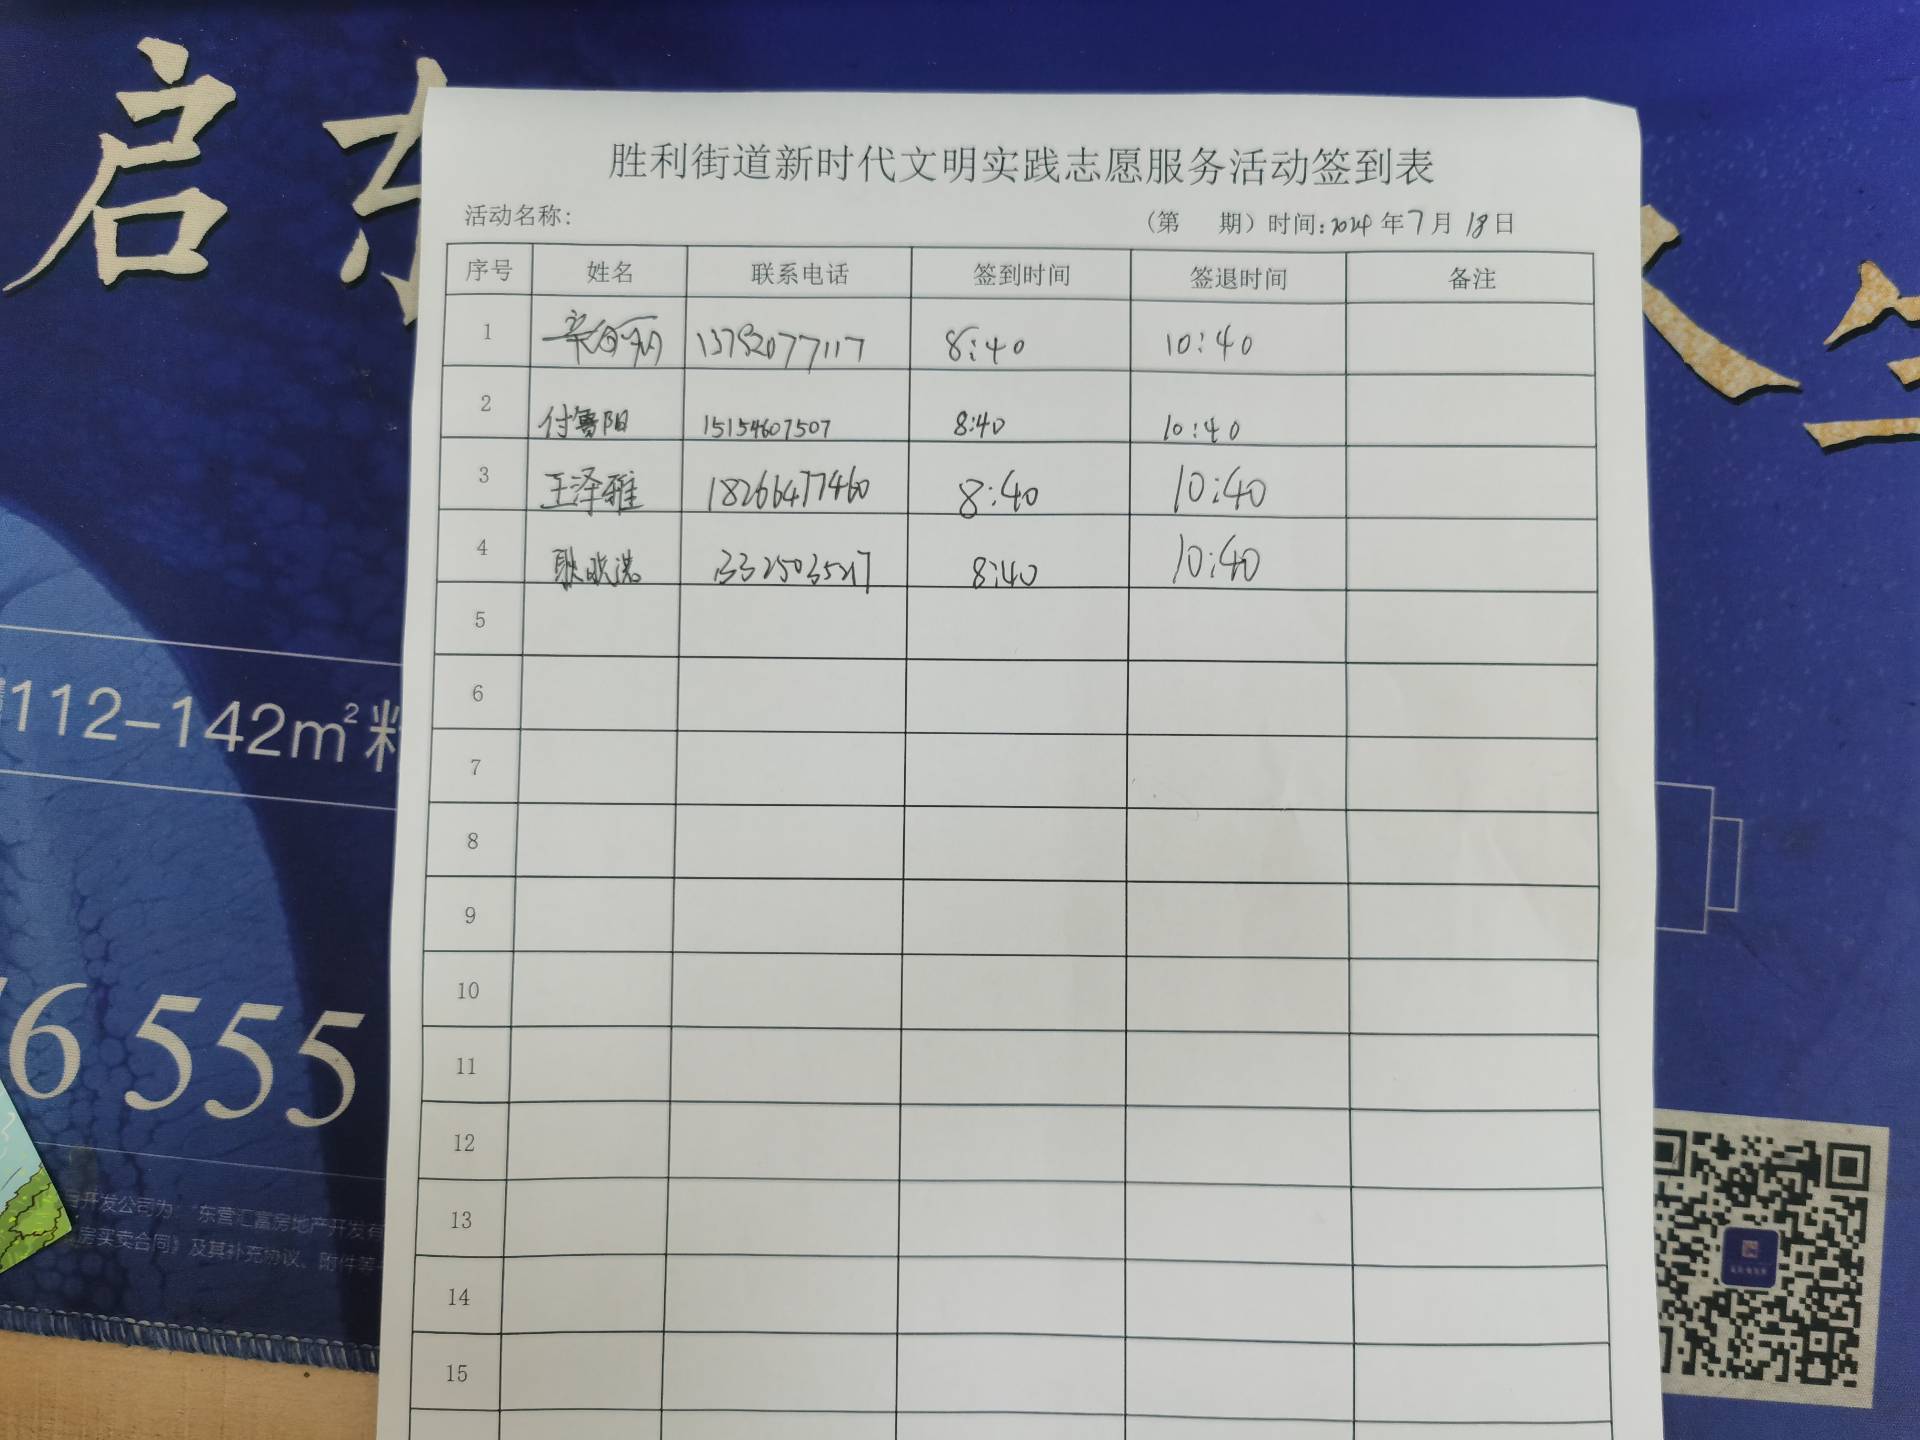 启东
人生
胜利街道新时代文明实践志愿服务活动签到表
活动名称：
（第 期）时间：2024年7月18日
序号 姓名 联系电话 签到时间 签退时间 备注
1 13792077117 8:40 10:40
2 付鲁阳 15154607507 8:40 10:40
3 王泽雅 18266477460 8:40 10:40
4 耿晓 13325035217 8:40 10:40
5
6
7
8
9
10
11
12
13
14
15
112-142m²
6 555
开发公司为："东营汇富房地产开发有
房买卖合同》及其补充协议、附件等